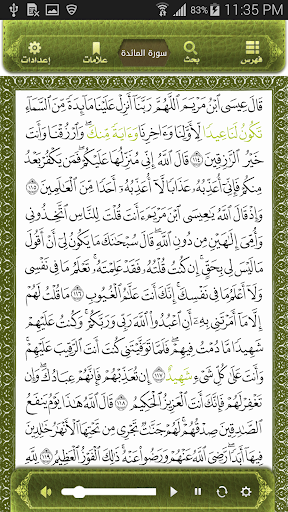 83% 11:35 PM
فهرس
بحث
سورة المائدة
علامات
إعدادات
قَالَ عِيسَى ٱبْنُ مَرْيَمَ ٱللَّهُمَّ رَبَّنَآ أَنزِلْ عَلَيْنَا مَآئِدَةً مِّنَ ٱلسَّمَآءِ
تَكُونُ لَنَا عِيدًا لِّأَوَّلِنَا وَءَاخِرِنَا وَءَايَةً مِّنكَ ۖ وَٱرْزُقْنَا وَأَنتَ
خَيْرُ ٱلرَّٰزِقِينَ ١١٤ قَالَ ٱللَّهُ إِنِّى مُنَزِّلُهَا عَلَيْكُمْ ۖ فَمَن يَكْفُرْ بَعْدُ
مِنكُمْ فَإِنِّىٓ أُعَذِّبُهُۥ عَذَابًا لَّآ أُعَذِّبُهُۥٓ أَحَدًا مِّنَ ٱلْعَٰلَمِينَ ١١٥
وَإِذْ قَالَ ٱللَّهُ يَٰعِيسَى ٱبْنَ مَرْيَمَ ءَأَنتَ قُلْتَ لِلنَّاسِ ٱتَّخِذُونِى
وَأُمِّىَ إِلَٰهَيْنِ مِن دُونِ ٱللَّهِ ۖ قَالَ سُبْحَٰنَكَ مَا يَكُونُ لِىٓ أَنْ أَقُولَ
مَا لَيْسَ لِى بِحَقٍّ ۚ إِن كُنتُ قُلْتُهُۥ فَقَدْ عَلِمْتَهُۥ ۚ تَعْلَمُ مَا فِى نَفْسِى
وَلَآ أَعْلَمُ مَا فِى نَفْسِكَ ۚ إِنَّكَ أَنتَ عَلَّٰمُ ٱلْغُيُوبِ ١١٦ مَا قُلْتُ لَهُمْ
إِلَّا مَآ أَمَرْتَنِى بِهِۦٓ أَنِ ٱعْبُدُوا۟ ٱللَّهَ رَبِّى وَرَبَّكُمْ ۚ وَكُنتُ عَلَيْهِمْ
شَهِيدًا مَّا دُمْتُ فِيهِمْ ۖ فَلَمَّا تَوَفَّيْتَنِى كُنتَ أَنتَ ٱلرَّقِيبَ عَلَيْهِمْ ۚ
وَأَنتَ عَلَىٰ كُلِّ شَىْءٍ شَهِيدٌ ١١٧ إِن تُعَذِّبْهُمْ فَإِنَّهُمْ عِبَادُكَ ۖ وَإِن
تَغْفِرْ لَهُمْ فَإِنَّكَ أَنتَ ٱلْعَزِيزُ ٱلْحَكِيمُ ١١٨ قَالَ ٱللَّهُ هَٰذَا يَوْمُ يَنفَعُ
ٱلصَّٰدِقِينَ صِدْقُهُمْ ۚ لَهُمْ جَنَّٰتٌ تَجْرِى مِن تَحْتِهَا ٱلْأَنْهَٰرُ خَٰلِدِينَ
فِيهَآ أَبَدًا ۚ رَّضِىَ ٱللَّهُ عَنْهُمْ وَرَضُوا۟ عَنْهُ ۚ ذَٰلِكَ ٱلْفَوْزُ ٱلْعَظِيمُ ١١٩ لِلَّهِ